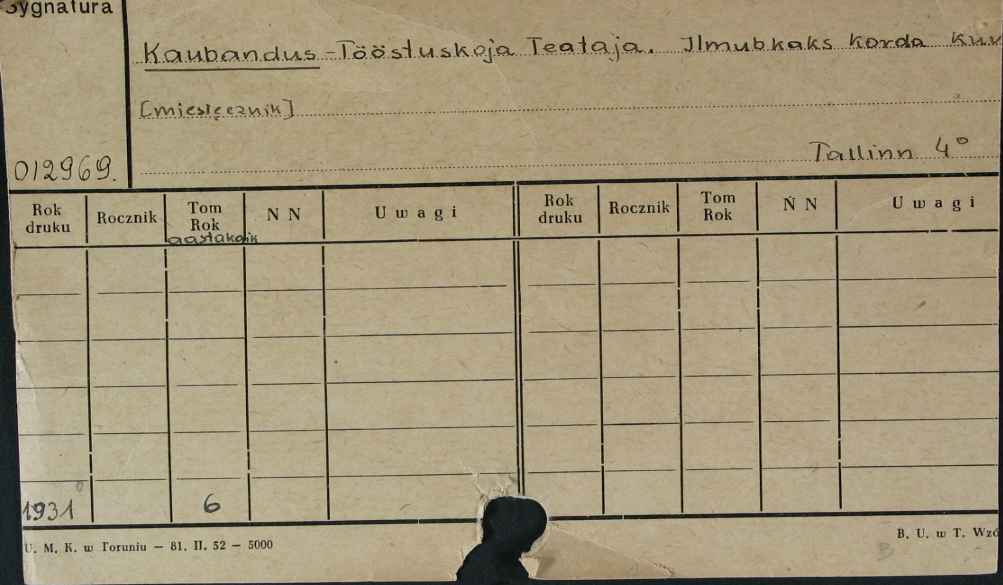 Sygnatura
Kaubandus-Tööstuskoja Teataja. Ilmubkaks korda kuu
[miesięcznik]
Tallinn 4°
012969.
Rok druku Rocznik Tom Rok N N Uwagi Rok druku Rocznik Tom Rok N N Uwagi
aastakäik
1931 6
U. M. K. w Toruniu — 81. II. 52 — 5000
B. U. w T. Wzó
B